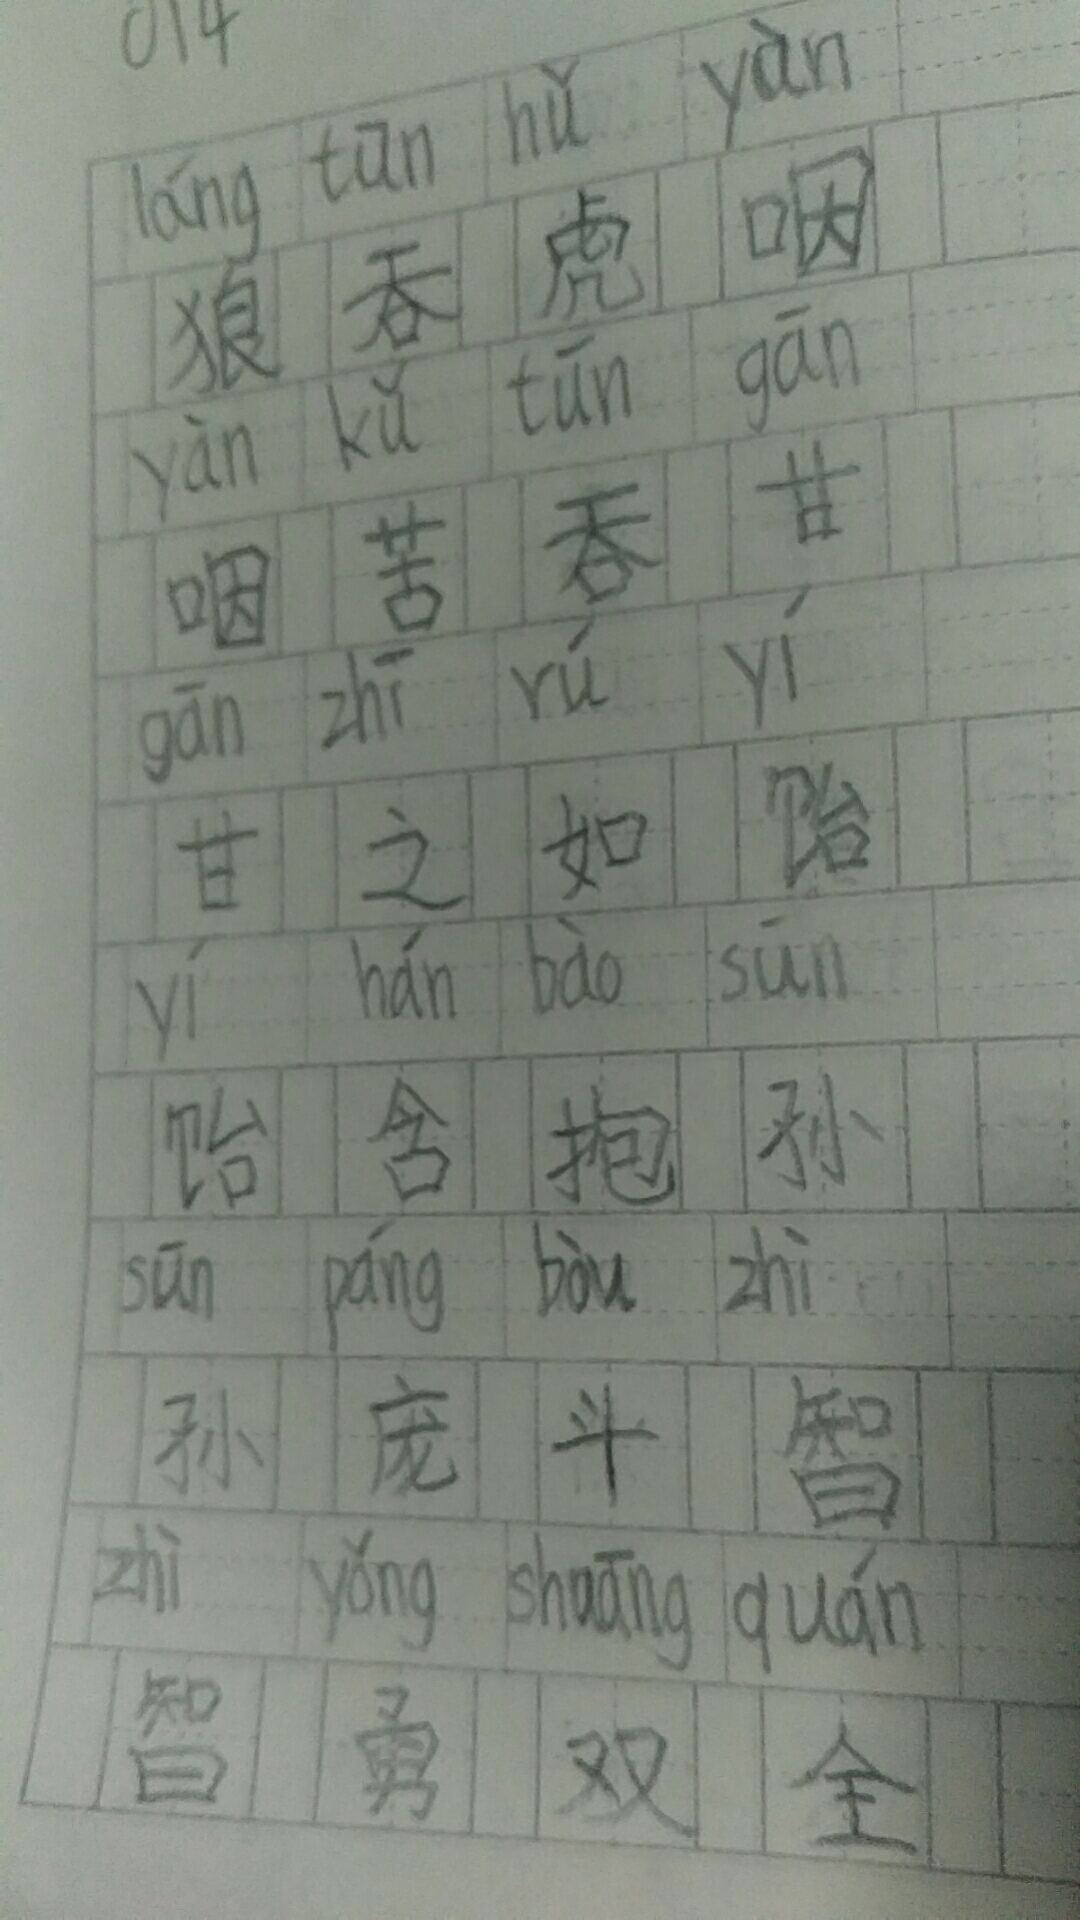 014
láng tūn hǔ yàn
狼吞虎咽
yàn kǔ tūn gān
咽苦吞甘
gān zhī rú yí
甘之如饴
yí hán bào sūn
饴含抱孙
sūn páng bòu zhì
孙庞斗智
zhì yǒng shuāng quán
智勇双全